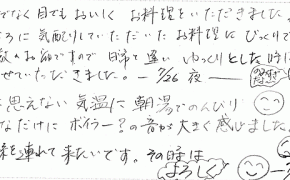 でなく目でもおいしく お料理をいただきました。
ころに気配りしていただいたお料理にびっくりで
お宿ですので 日常と違い ゆっくりとした時に
せていただきました。 ― 7/26 夜 ―
思えない気温に 朝湯でのんびり
なだけに ボイラー?の音が大きく感じました。
を連れて来たいです。その時は
よろしく